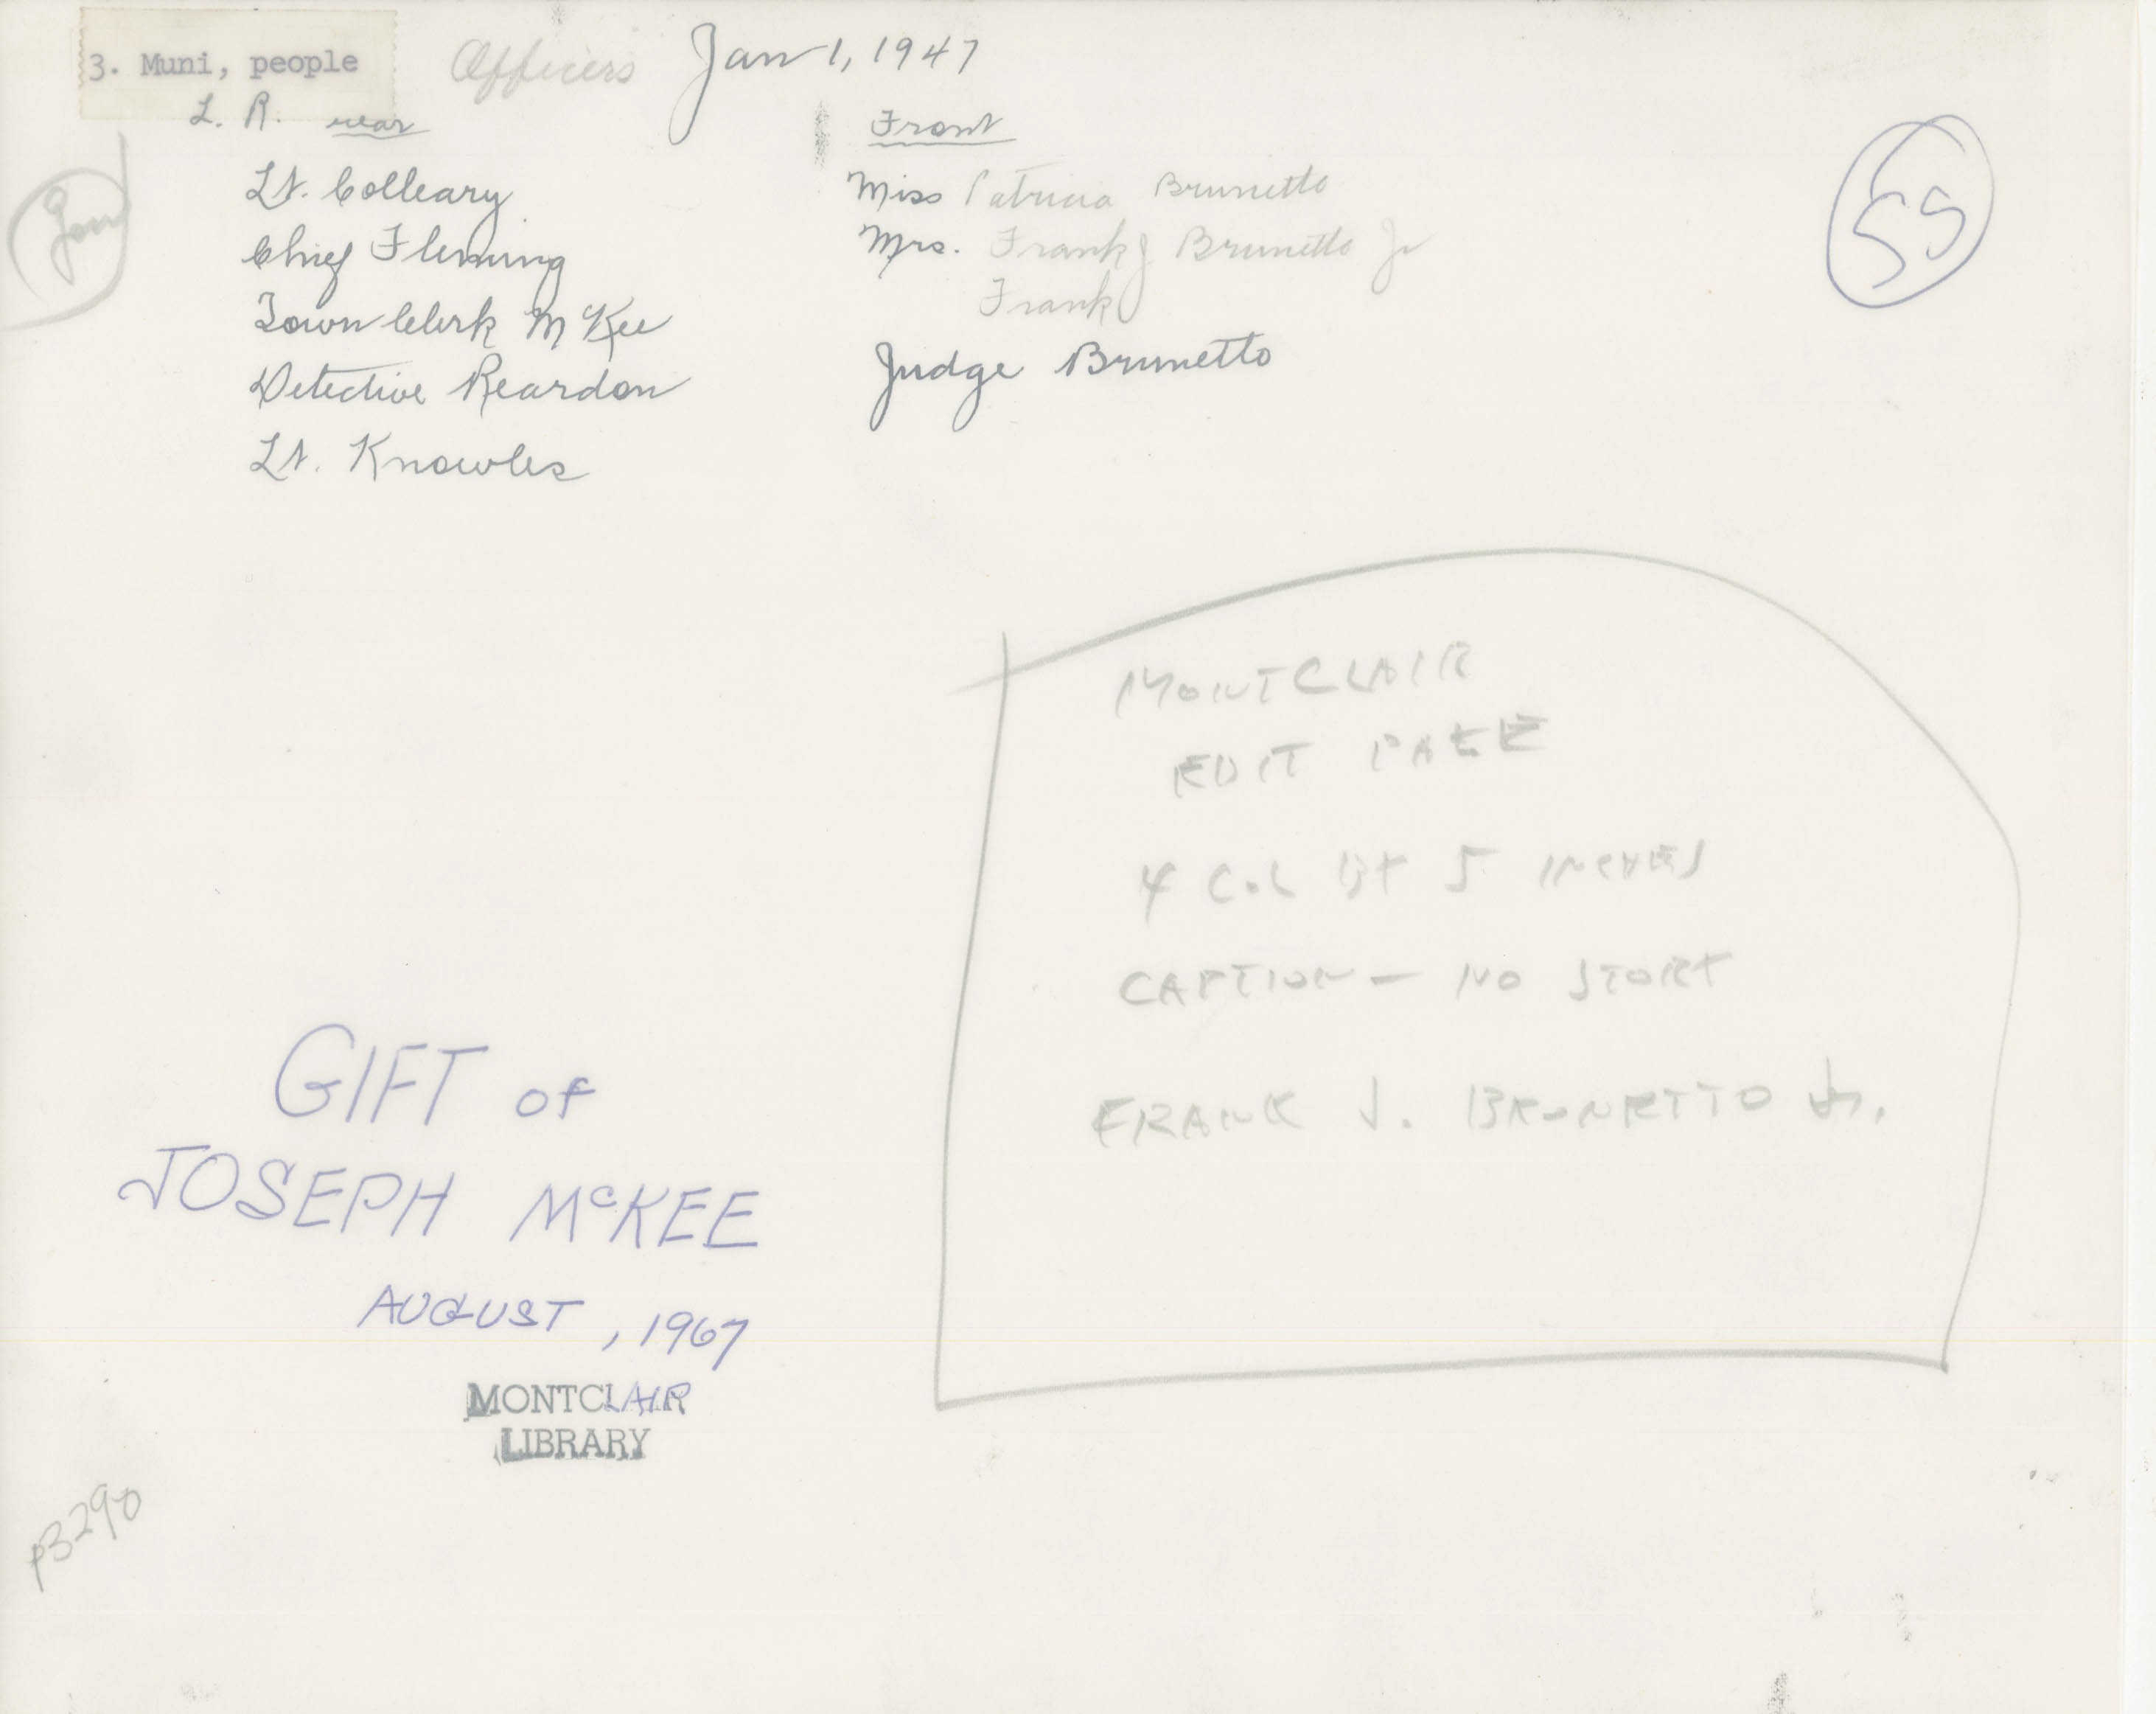 3. Muni, people Officers Jan 1, 1947
L. R. rear
Lt. Colleary
Chief Fleming
Town Clerk McKee
Detective Reardon
Lt. Knowles
Front
Miss Patricia Brunetto
Mrs. Frank J Brunetto Jr
Frank J
Judge Brunetto
55
Jan
MONTCLAIR
EDIT PAGE
4 COL BY 5 INCHES
CAPTION — NO STORY
FRANK J. BRUNETTO Jr.
GIFT of
JOSEPH McKEE
AUGUST, 1967
MONTCLAIR
LIBRARY
p3290